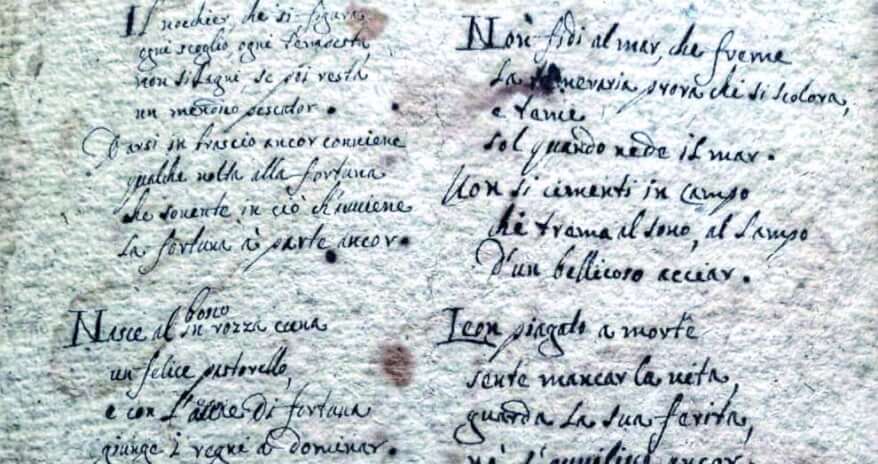 Il nocchier, che si figura
ogni scoglio, ogni tempesta,
non si lagni, se poi resta
un mendico pescator.
Darsi in braccio ancor conviene
qualche volta alla fortuna
che sovente in ciò ch'avviene
la fortuna à parte ancor.
Nasce al bosco
in rozza cuna
un felice pastorello,
e con l'aure di fortuna
giunge i regni a dominar.
Non fidi al mar, che freme
la temeraria prora chi si scolora,
e teme
sol quando vede il mar.
Non si cimenti in campo
chi trema al sono, al lampo
d'un bellicoso acciar.
Leon piagato a morte
sente mancar la vita,
guarda la sua ferita,
nè s'avvilisce ancor.